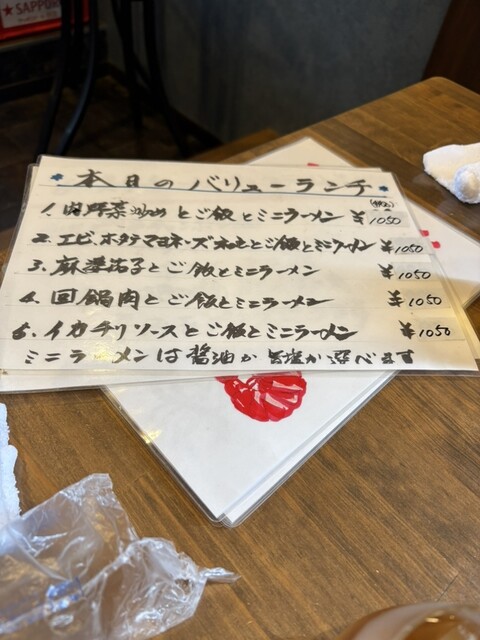 ★ SAPPORO
本日のバリューランチ
(税込)
1. 肉野菜炒めとご飯とミニラーメン ¥1050
2. エビ、ホタテマヨネーズ和えとご飯とミニラーメン ¥1050
3. 麻婆茄子とご飯とミニラーメン ¥1050
4. 回鍋肉とご飯とミニラーメン ¥1050
5. イカチリソースとご飯とミニラーメン ¥1050
ミニラーメンは醤油か旨塩か選べます